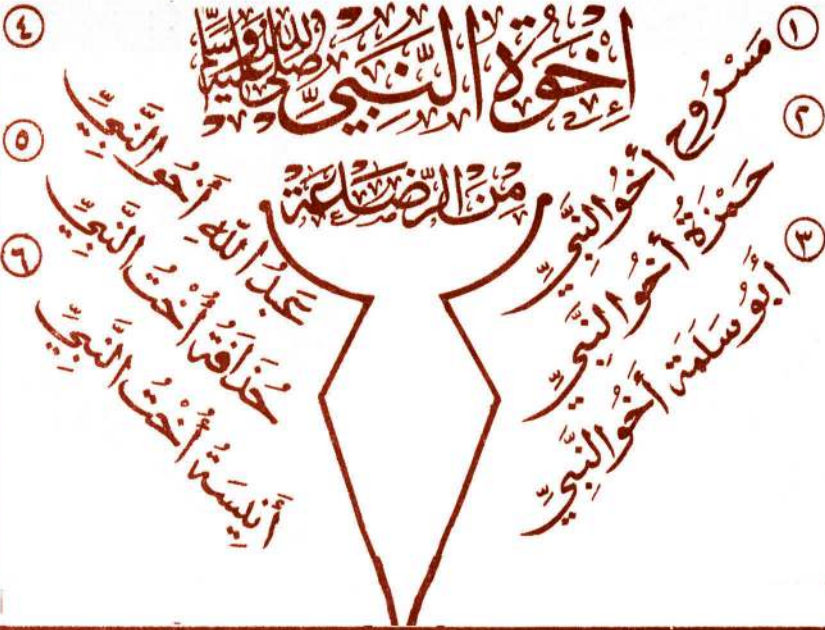 إِخْوَةُ النَّبِيِّ صلى الله عليه وسلم
مِنَ الرَّضَاعَةِ
١ مَسْرُوح أَخُو النَّبِيِّ
٢ حَمْزَةُ أَخُو النَّبِيِّ
٣ أَبُو سَلَمَة أَخُو النَّبِيِّ
٤ عَبْدُ اللَّهِ أَخُو النَّبِيِّ
٥ حُذَافَةُ أُخْتُ النَّبِيِّ
٦ أَنِيسَةُ أُخْتُ النَّبِيِّ